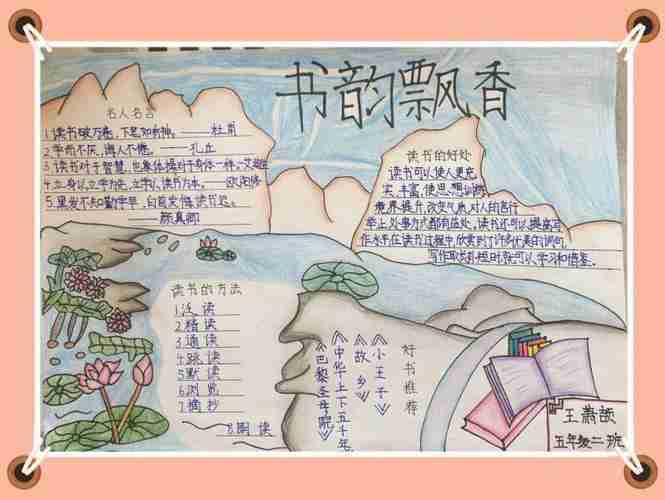 书韵飘香
名人名言
1.读书破万卷,下笔如有神。——杜甫
2.学而不厌,诲人不倦。——孔丘
3.读书对于智慧,也象体操对于身体一样。—艾迪生
4.立身以立学为先,立学以读书为本。——欧阳修
5.黑发不知勤学早,白首方悔读书迟。
——颜真卿
读书的好处
读书可以使人更充
实、丰富,使思想
境界提升,改变气质,对人的言行
举止,处事方式都有益处,读书还可以提高写
作水平,在读书过程中,欣赏到了许多优美的词句,
写作取
就可以学习和借鉴。
读书的方法
1.泛读
2.精读
3.通读
4.跳读
5.默读
6.浏览
7.摘抄
8.朗读
好书推荐
《小王子》
《故乡》
《中华上下五千年》
《巴黎圣母院》
王萧
五年级二班